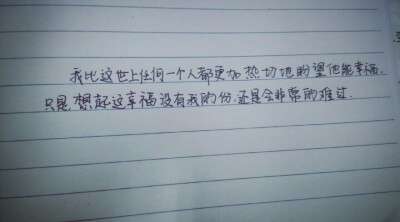 我比这世上任何一个人都更加热切地盼望他能幸福.
只是,想起这幸福没有我的份.还是会非常的难过.